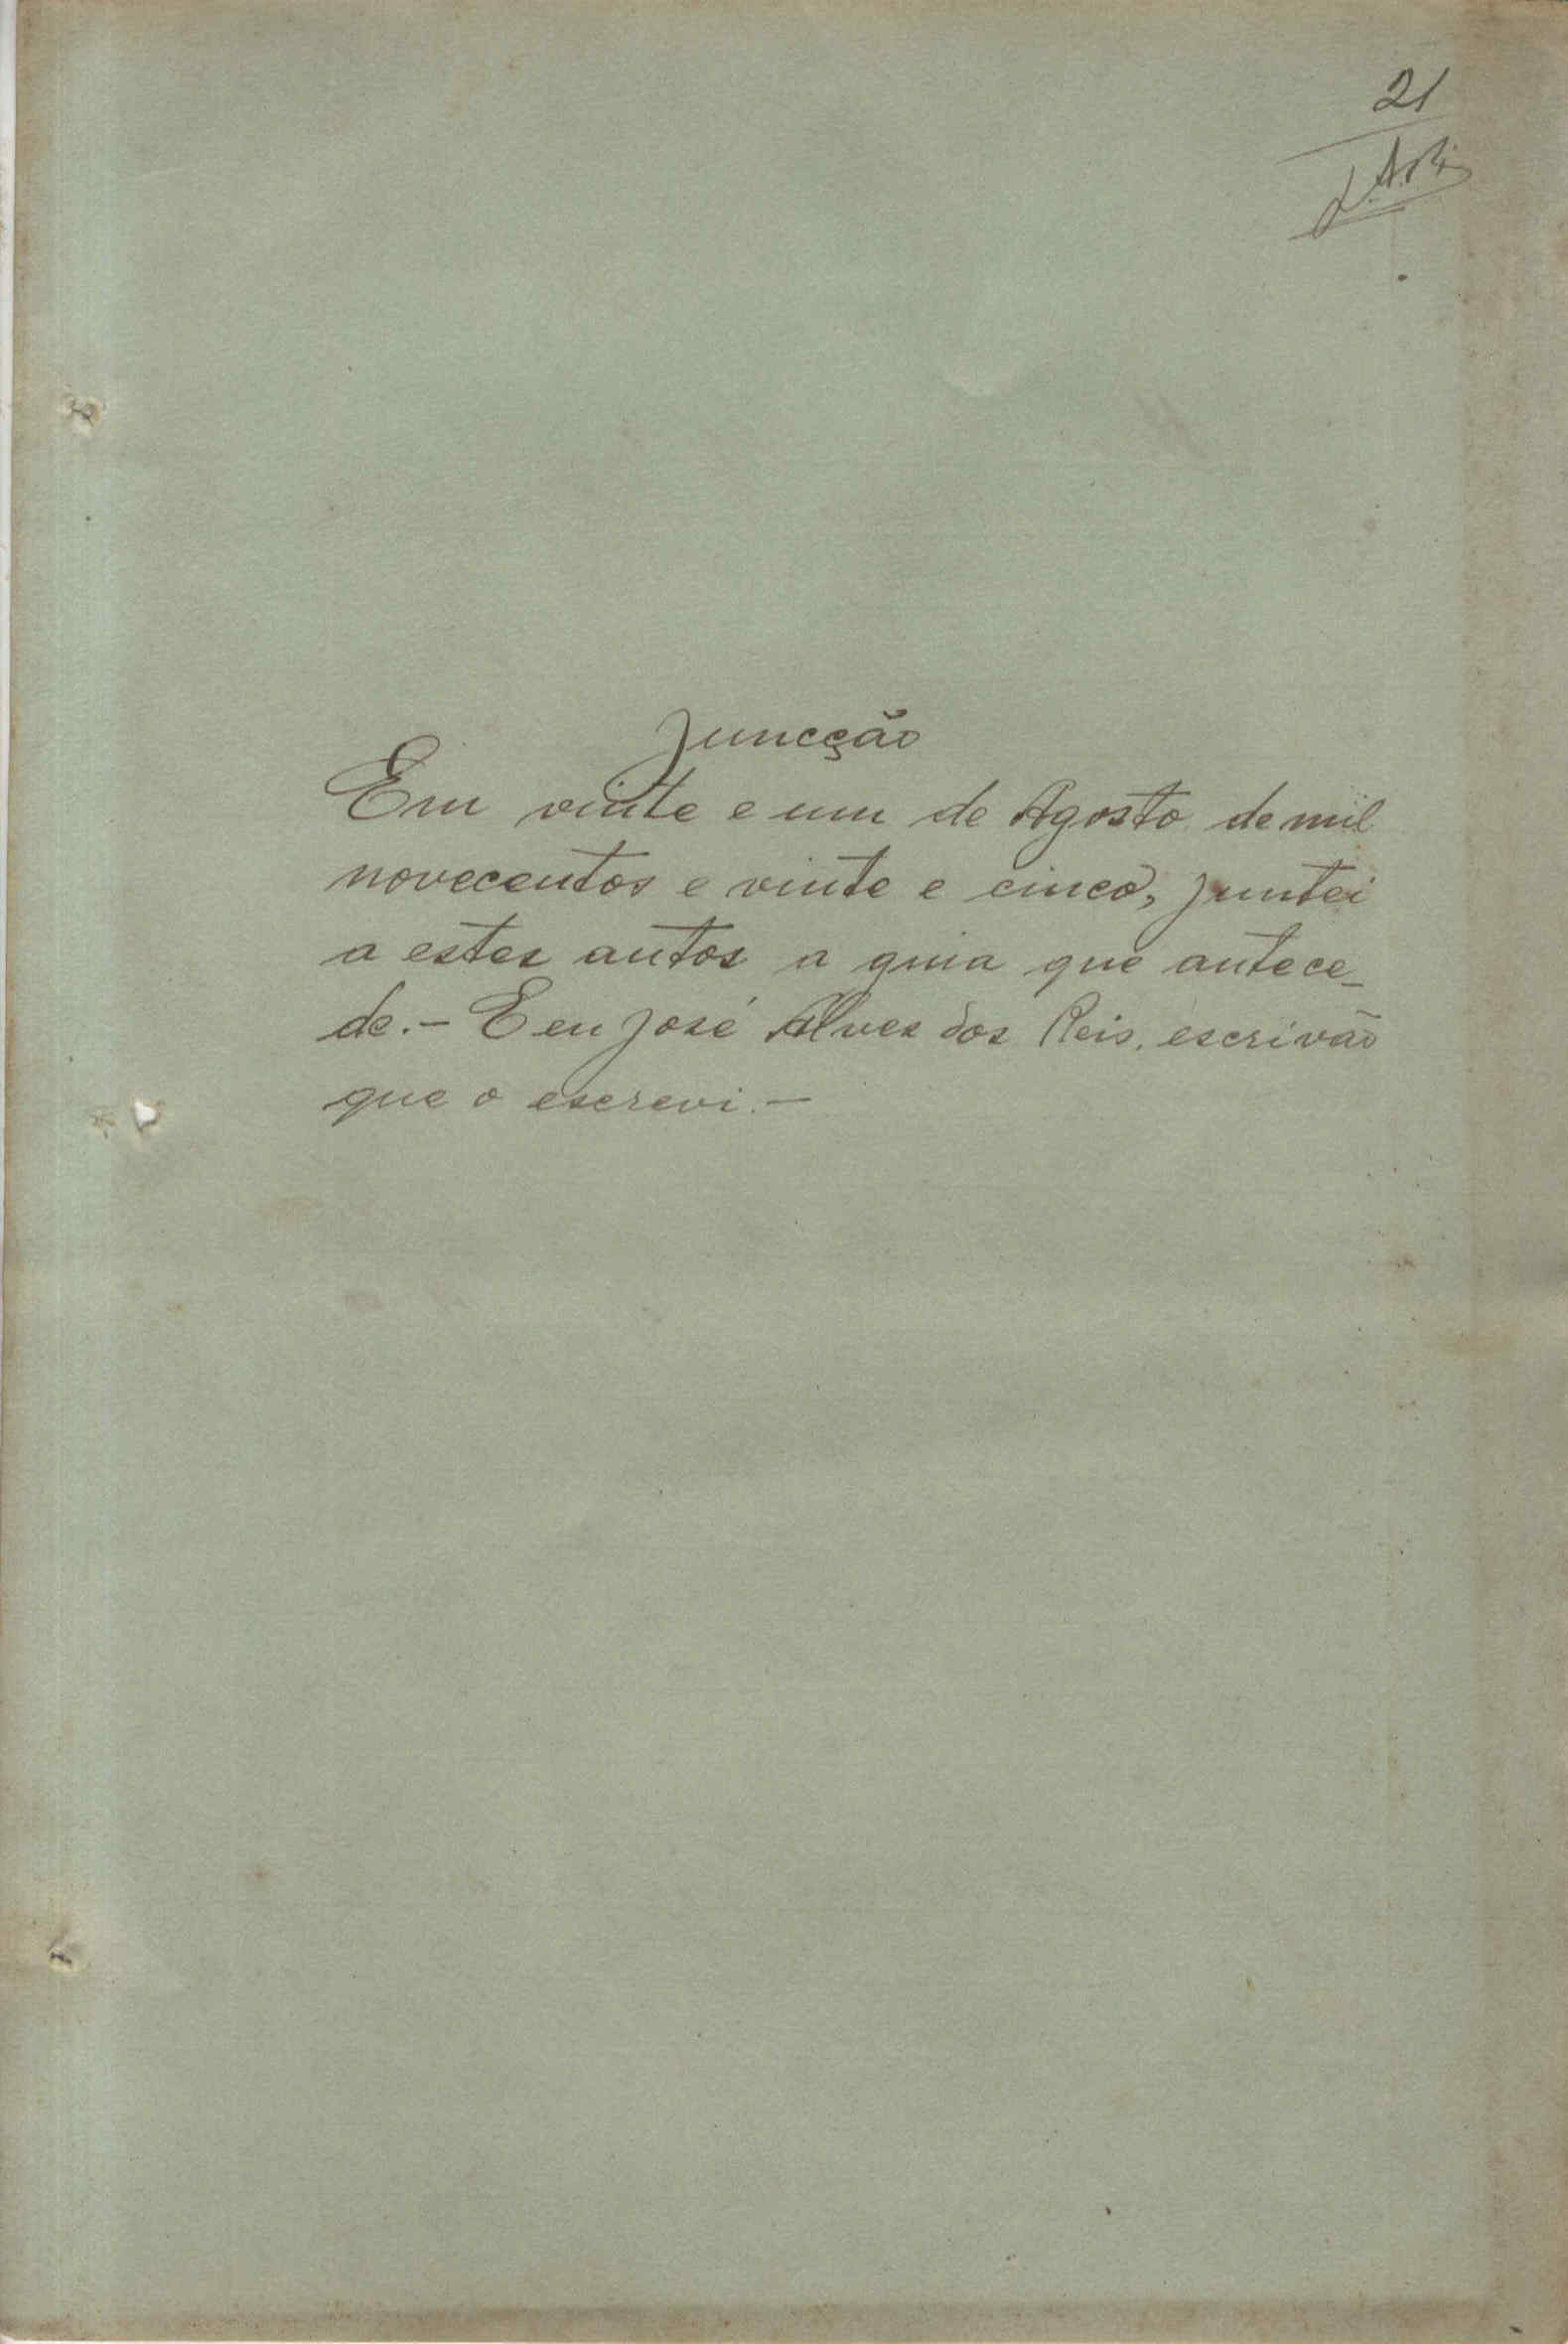 21
J. A. Reis
Juncção
Em vinte e um de Agosto de mil
novecentos e vinte e cinco, juntei
a estes autos a guia que antece_
de.- E eu José Alves dos Reis, escrivão
que o escrevi.-